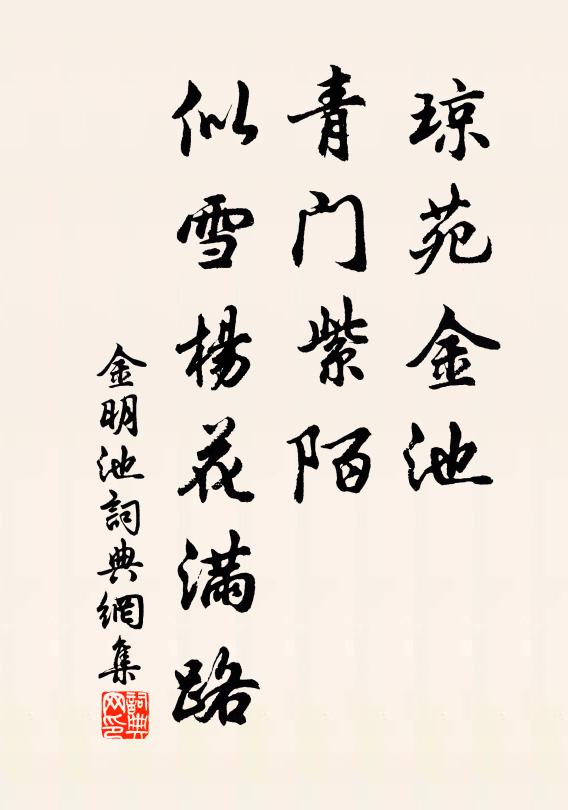 琼苑金池
青门紫陌
似雪楊花满路
金明池詞典網集
詞典网印